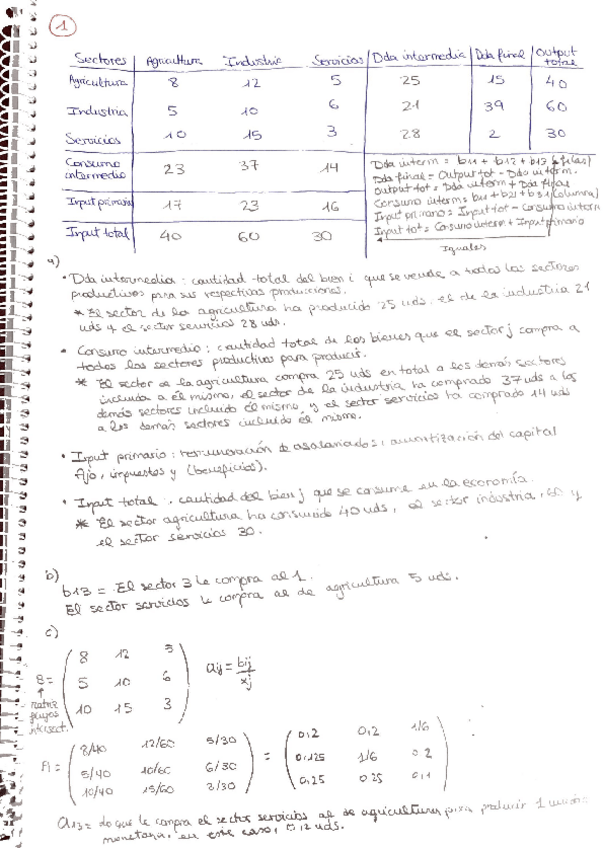 1
Sectores Agricultura Industria Servicios Dda intermedia Dda final Output total
Agricultura 8 12 5 25 15 40
Industria 5 10 6 21 39 60
Servicios 10 15 3 28 2 30
Consumo intermedio 23 37 14
Input primario 17 23 16
Input total 40 60 30
Dda interm = b11 + b12 + b13 (filas)
Dda final = Output tot - Dda interm.
Output tot = Dda interm + Dda final
Consumo interm = b11 + b21 + b31 (columna)
Input primario = Input tot - Consumo interm
Input tot = Consumo interm + Input primario
Iguales
a)
• Dda intermedia : cantidad total del bien i que se vende a todos los sectores
productivos para sus respectivas producciones.
* El sector de la agricultura ha producido 25 uds. el de la industria 21
uds y el sector servicios 28 uds.
• Consumo intermedio : cantidad total de los bienes que el sector j compra a
todos los sectores productivos para producir.
* El sector de la agricultura compra 25 uds en total a los demás sectores
incluido a él mismo, el sector de la industria ha comprado 37 uds a los
demás sectores incluido él mismo, y el sector servicios ha comprado 14 uds
a los demás sectores incluido él mismo.
• Input primario : remuneración de asalariados, amortización del capital
fijo, impuestos y (beneficios).
• Input total : cantidad del bien j que se consume en la economía.
* El sector agricultura ha consumido 40 uds, el sector industria, 60 y
el sector servicios 30.
b)
b13 = El sector 3 le compra al 1.
El sector servicios le compra al de agricultura 5 uds.
c)
B = 8 12 5
5 10 6
10 15 3
aij = bij/xj
matriz
flujos
intersect.
A = 8/40 12/60 5/30 = 0,2 0,2 1/6
5/40 10/60 6/30 0,125 1/6 0,2
10/40 15/60 3/30 0,25 0,25 0,1
a13 = lo que le compra el sector servicios al de agricultura para producir 1 unidad
monetaria, en este caso, uds.